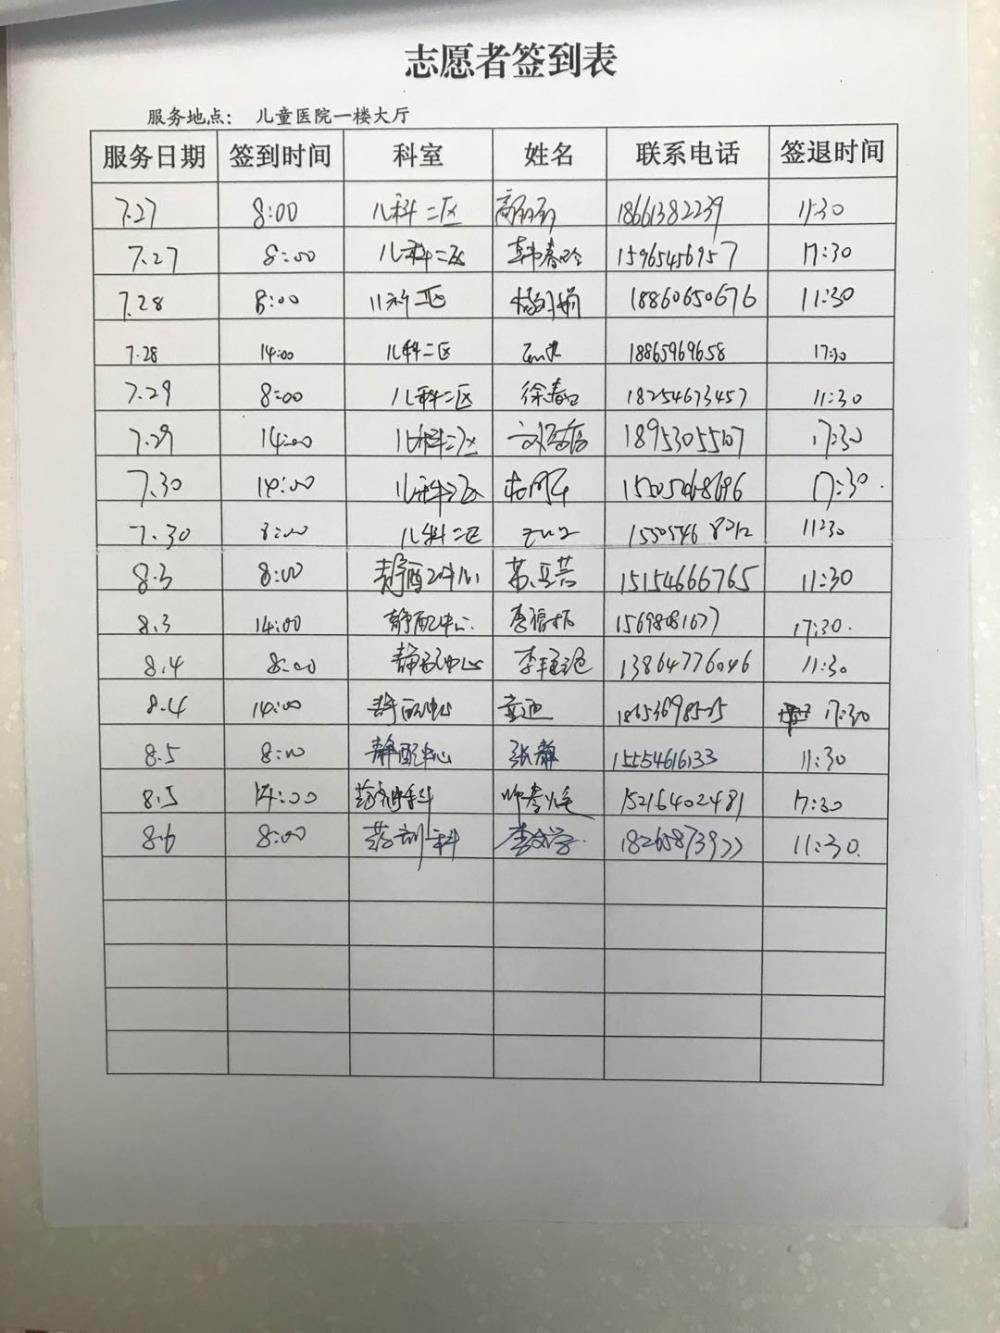 志愿者签到表
服务地点： 儿童医院一楼大厅
服务日期 签到时间 科室 姓名 联系电话 签退时间
7.27 8:00 儿科二区 18661382239 11:30
7.27 8:00 儿科二区 韩春玲 15965456957 17:30
7.28 8:00 儿科二区 18860650676 11:30
7.28 14:00 儿科二区 18865969658 17:30
7.29 8:00 儿科二区 徐春 18254673457 11:30
7.29 14:00 儿科二区 18953055107 17:30
7.30 14:00 儿科二区 17:30.
7.30 8:00 儿科二区 11:30
8.3 8:00 静配中心 15154666765 11:30
8.3 14:00 静配中心. 15698081677 17:30.
8.4 8:00 静配中心 13864776046 11:30
8.4 14:00 静配中心 17:30
8.5 8:00 静配中心 张静 15554616133 11:30
8.5 14:00 15216402481 17:30
8.6 8:00 药剂科 李文学. 11:30.